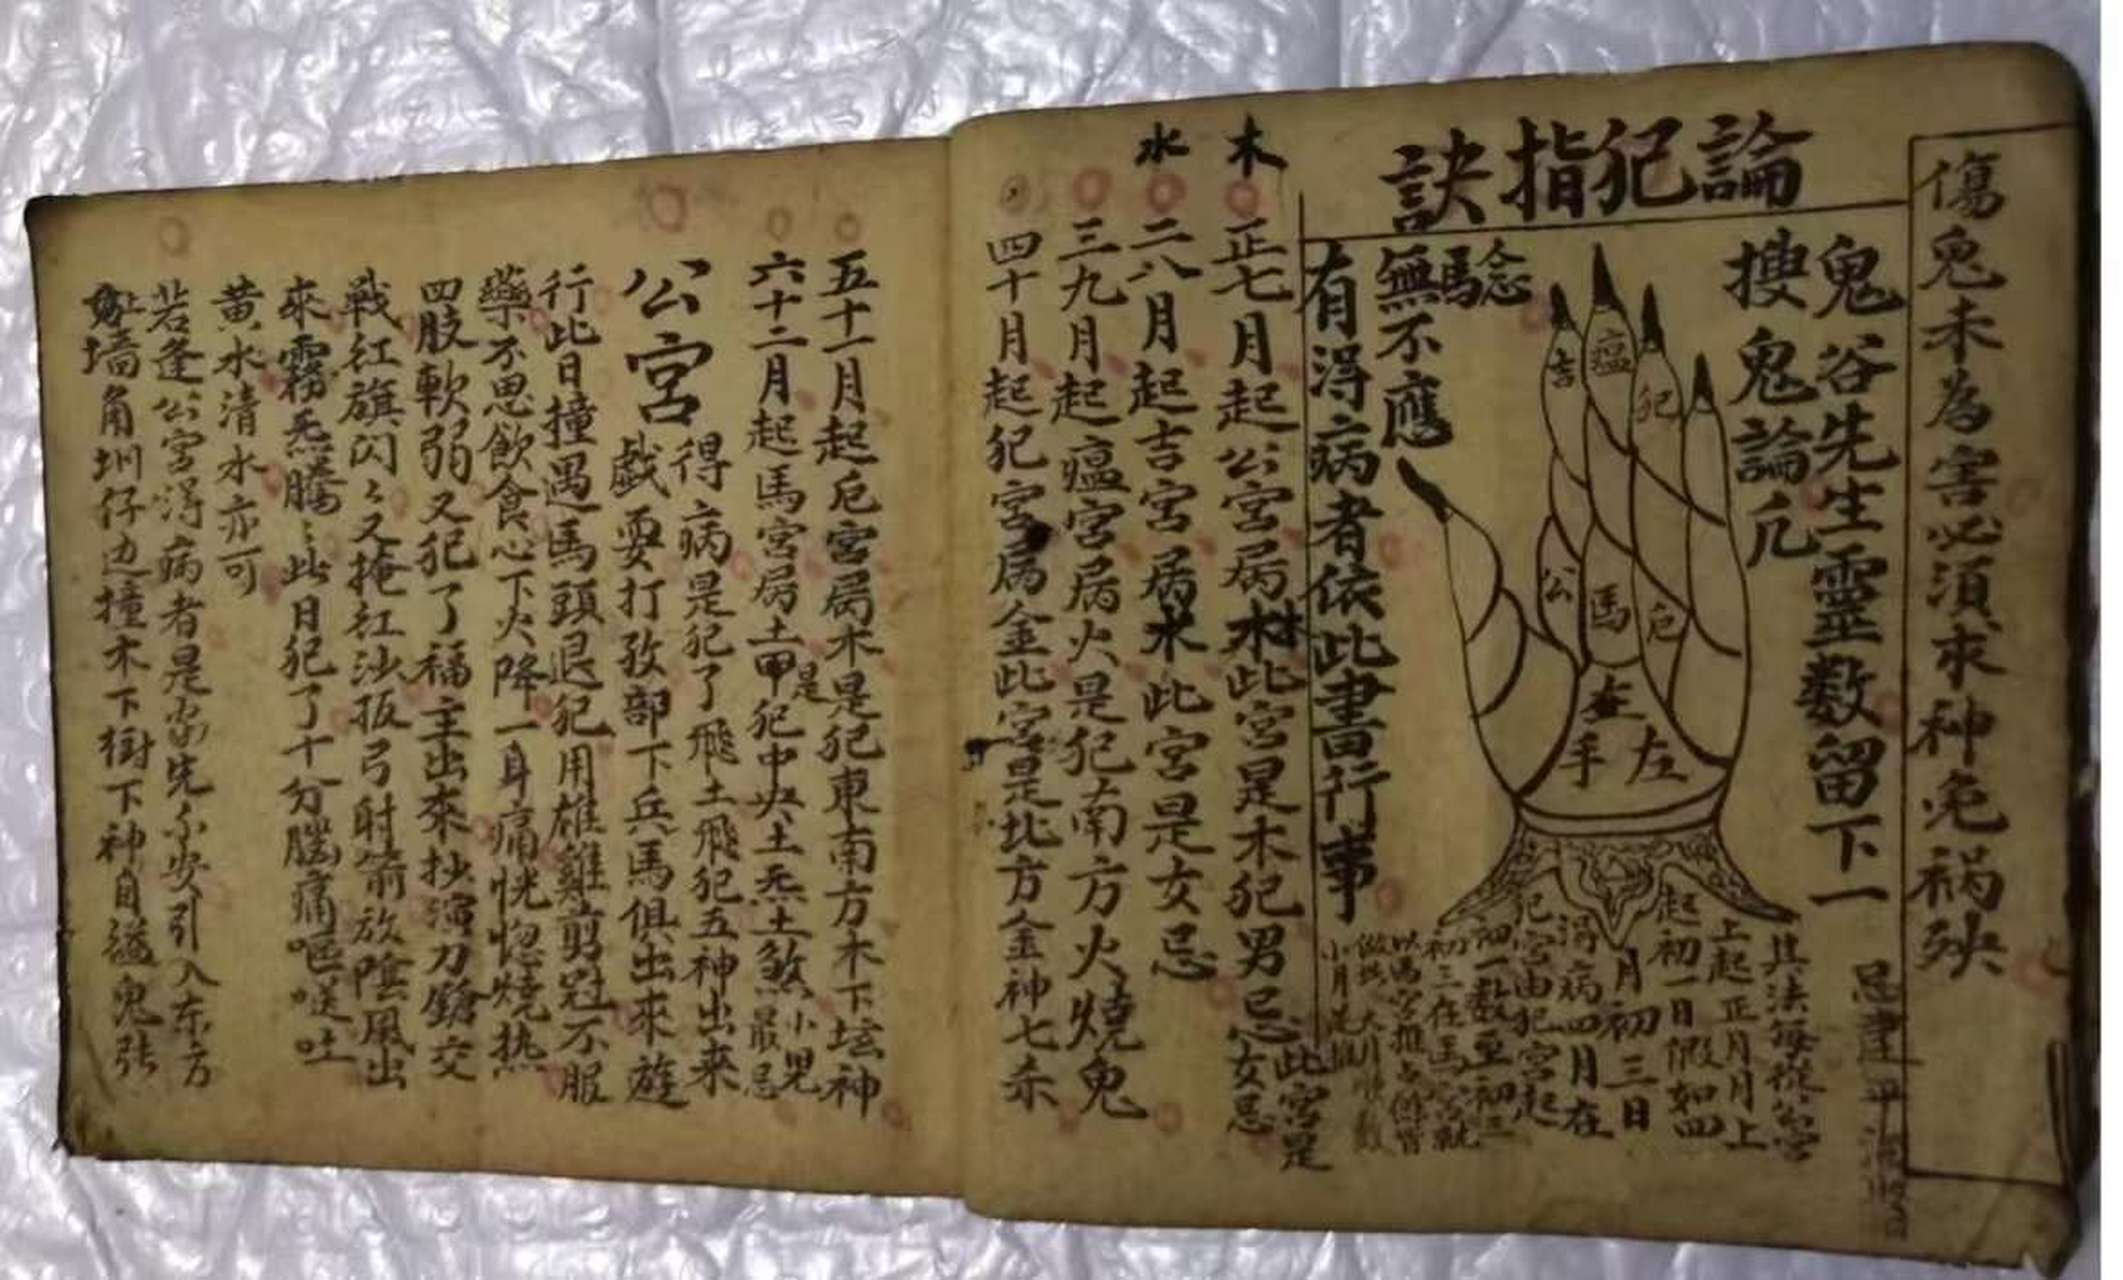 傷鬼未為害必須求神免禍殃
論犯指訣
鬼谷先生靈数留下一
搜鬼論卮
吉
瘟
犯
公
馬
卮
左手
無不應驗
有得病者依此書行事
其法每從公宮
上起正月月上
起初一日假如四
月初三日
得病四月在
犯宮由犯宮起
初一数至初三
初三在馬宮就
以馬宮推之餘皆
木
正七月起公宮屬木此宮是木犯男忌女忌
此宮是
水
二八月起吉宮屬水此宮是女忌
三九月起瘟宮屬火是犯南方火燒鬼
四十月起犯宮屬金此宮是北方金神七杀
五十一月起卮宮屬木是犯東南方木下坛神
六十二月起馬宮屬土是犯中央土炁土煞小兒最忌
公宮
得病是犯了飛土飛犯五神出来
戯耍打孜部下兵馬俱出來遊
行此日撞遇馬頭退犯用雄雞剪冠不服
藥不思飲食心下火降一身痛恍惚燒热
四肢軟弱又犯了福主出來抄演刀鎗交
戰红旗闪々又掩红沙扳弓射箭放陰風出
來霧炁騰々此月犯了十分腦痛嘔哒吐
黄水清水亦可
若逢公宮得病者是當先不安引入东方
墙角圳仔边撞木下樹下神自縊鬼张